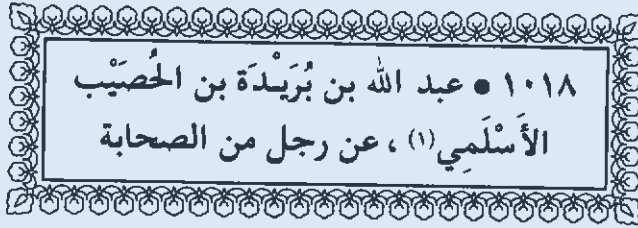 ١٠١٨ • عبد الله بن بُرَيْدَة بن الحُصَيْب
الأَسْلَمِي(١) ، عن رجل من الصحابة